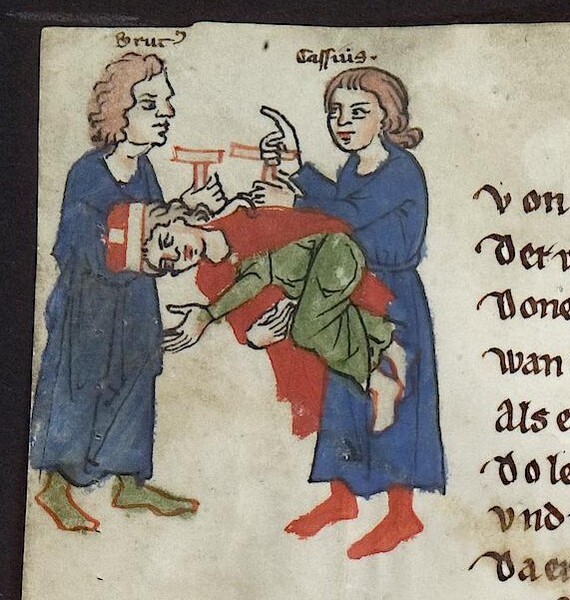 Brutꝰ
Cassius.
von
Der
Done
wan
Als e
Do le
vnd
Da er